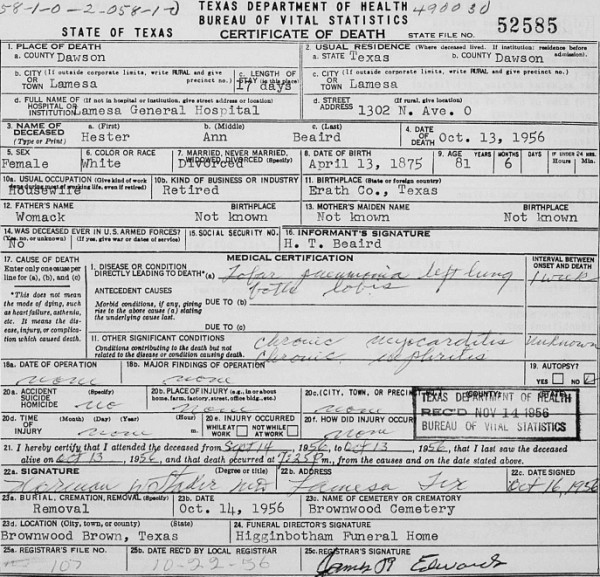 58-1-0-2-058-1-0 TEXAS DEPARTMENT OF HEALTH 490030
BUREAU OF VITAL STATISTICS
STATE OF TEXAS CERTIFICATE OF DEATH STATE FILE NO. 52585
1. PLACE OF DEATH 2. USUAL RESIDENCE (Where deceased lived. If institution: residence before admission).
a. COUNTY Dawson a. STATE Texas b. COUNTY Dawson
b. CITY (If outside corporate limits, write RURAL and give precinct no.) OR TOWN Lamesa c. LENGTH OF STAY (in this place) 17 days c. CITY (If outside corporate limits, write RURAL and give precinct no.) OR TOWN Lamesa
d. FULL NAME OF (If not in hospital or institution, give street address or location) HOSPITAL OR INSTITUTION Lamesa General Hospital d. STREET ADDRESS (If rural, give location) 1302 N. Ave. O
3. NAME OF DECEASED (Type or Print) a. (First) Hester b. (Middle) Ann c. (Last) Beaird 4. DATE OF DEATH Oct. 13, 1956
5. SEX Female 6. COLOR OR RACE White 7. MARRIED, NEVER MARRIED, WIDOWED, DIVORCED (Specify) Divorced 8. DATE OF BIRTH April 13, 1875 9. AGE YEARS 81 MONTHS 6 DAYS IF UNDER 24 HRS. Hours Min.
10a. USUAL OCCUPATION (Give kind of work done during most of working life, even if retired) Housewife 10b. KIND OF BUSINESS OR INDUSTRY Retired 11. BIRTHPLACE (State or foreign country) Erath Co., Texas
12. FATHER'S NAME Womack BIRTHPLACE Not known 13. MOTHER'S MAIDEN NAME Not known BIRTHPLACE Not known
14. WAS DECEASED EVER IN U.S. ARMED FORCES? (Yes, no, or unknown) (If yes, give war or dates of service) No 15. SOCIAL SECURITY NO. 16. INFORMANT'S SIGNATURE H. T. Beaird
17. CAUSE OF DEATH MEDICAL CERTIFICATION INTERVAL BETWEEN ONSET AND DEATH
Enter only one cause per line for (a), (b), and (c) I. DISEASE OR CONDITION DIRECTLY LEADING TO DEATH* (a) Lobar pneumonia left lung
both lobes
*This does not mean the mode of dying, such as heart failure, asthenia, etc. It means the disease, injury, or complication which caused death. ANTECEDENT CAUSES
Morbid conditions, if any, giving rise to the above cause (a) stating the underlying cause last. DUE TO (b)
DUE TO (c)
11. OTHER SIGNIFICANT CONDITIONS Chronic myocarditis Unknown
Conditions contributing to the death but not related to the disease or condition causing death. Chronic nephritis
18a. DATE OF OPERATION none 18b. MAJOR FINDINGS OF OPERATION none 19. AUTOPSY? YES NO
20a. ACCIDENT SUICIDE HOMICIDE (Specify) no 20b. PLACE OF INJURY (e.g., in or about home, farm, factory, street, office bldg., etc.) none 20c. (CITY, TOWN, OR PRECINCT NO.) (COUNTY) (STATE) none
20d. TIME OF INJURY (Month) (Day) (Year) (Hour) m. none 20e. INJURY OCCURRED WHILE AT WORK NOT WHILE AT WORK 20f. HOW DID INJURY OCCUR none
TEXAS DEPARTMENT OF HEALTH
REC'D NOV 14 1956
BUREAU OF VITAL STATISTICS
21. I hereby certify that I attended the deceased from Sept 14 1956, to Oct 13, 1956, that I last saw the deceased
alive on Oct 13, 1956, and that death occurred at m., from the causes and on the date stated above.
22a. SIGNATURE (Degree or title) MD 22b. ADDRESS Lamesa Tex 22c. DATE SIGNED Oct 16, 1956
23a. BURIAL, CREMATION, REMOVAL (Specify) Removal 23b. DATE Oct. 14, 1956 23c. NAME OF CEMETERY OR CREMATORY Brownwood Cemetery
23d. LOCATION (City, town, or county) (State) Brownwood Brown, Texas 24. FUNERAL DIRECTOR'S SIGNATURE Higginbotham Funeral Home
25a. REGISTRAR'S FILE NO. 107 25b. DATE REC'D BY LOCAL REGISTRAR 10-22-56 25c. REGISTRAR'S SIGNATURE Edwards